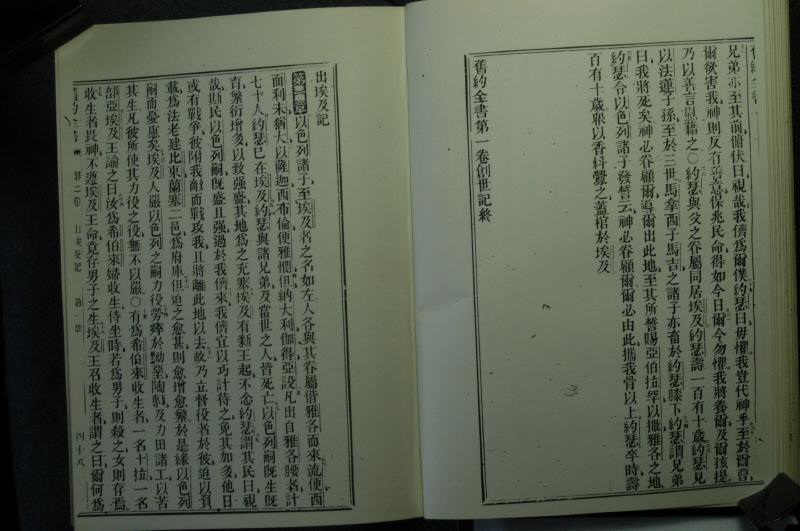 舊約全書
兄弟亦至其前俯伏曰視哉我儕爲爾僕約瑟曰毋懼我豈代神乎至於爾曹
爾欲害我神則反有善意保兆民命得如今日爾今勿懼我將養爾及爾孩提
乃以善言慰藉之○約瑟與父之眷屬同居埃及約瑟壽一百有十歲約瑟見
以法蓮子孫至於三世馬拿西子馬吉之諸子亦畜於約瑟膝下約瑟謂兄弟
曰我將死矣神必眷顧爾導爾出此地至其所誓賜亞伯拉罕以撒雅各之地
約瑟令以色列諸子發誓云神必眷顧爾爾必由此攜我骨以上約瑟卒時壽
百有十歲衆以香料釁之蓋棺於埃及
舊約全書第一卷創世記終
出埃及記
第一章以色列諸子至埃及者之名如左人各與其眷屬偕雅各而來流便西
面利未猶大以薩迦西布倫便雅憫但納大利伽得亞設凡出自雅各腰者計
七十人約瑟已在埃及約瑟與諸兄弟及當世之人皆死亡以色列嗣旣生旣
育繁衍增多以致强盛其地爲之充塞埃及有新王起不念約瑟謂其民曰視
哉斯民以色列嗣旣盛且强過於我儕來我儕宜以巧計待之免其加多他日
或有戰爭彼附我敵而戰攻我且將離此地以去故乃立督役者於彼迫以負
載爲法老建比東蘭塞二邑爲府庫但迫之愈甚則愈增愈繁於是緣以色列
嗣而憂慮矣埃及人嚴以色列之嗣力役勞瘁於黝堊陶甎及力田諸工以苦
其生凡彼所使其力役之役無不以嚴○有爲希伯來收生者一名十拉一名
部亞埃及王諭之曰汝爲希伯來婦收生侍坐時若爲男子則殺之女則存焉
收生者畏神不遵埃及王命竟存男子之生埃及王召收生者謂之曰爾何爲
舊約全書 第二卷 出埃及記 第一章 四十八